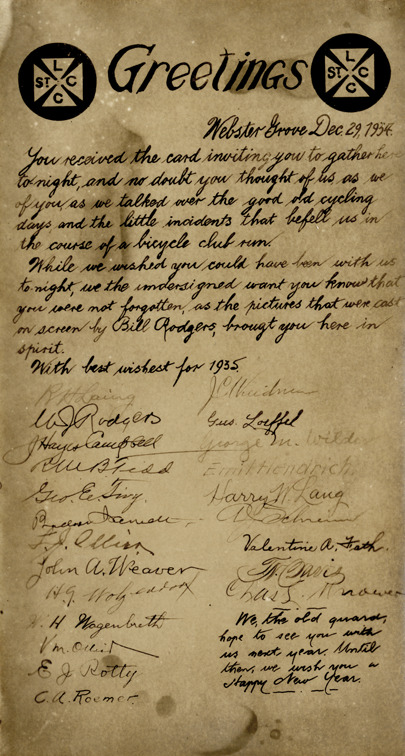 L
ST C
C
Greetings
L
ST C
C
Webster Grove Dec 29, 1934.
You received the card inviting you to gather here
to night, and no doubt you thought of us as we
of you as we talked over the good old cycling
days and the little incidents that befell us in
the course of a bicycle club run.
While we wished you could have been with us
to night, we the undersigned want you know that
you were not forgotten, as the pictures that were cast
on screen by Bill Rodgers, brougt you here in
spirit.
With best wishest for 1935.
Laing
W J Rodgers
J Hayes Campbell
Todd
Geo. E.
John A. Weaver
H Wagenbreth
E J Rotty
C. A. Roemer.
Gus. Loeffel
George M. Wilde
Frank Hendrich
Harry W. Lang
A Schneider
Valentine A. Fath.
Davis
Chas
We, the old guard,
hope to see you with
us next year. Until
then, we wish you a
Happy New Year.